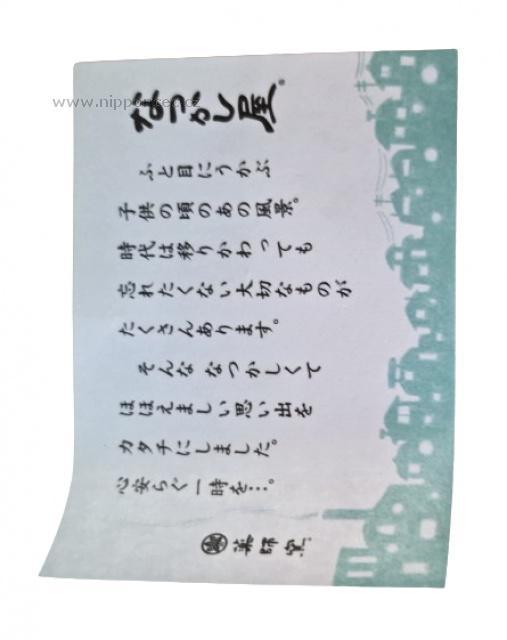 なつかし屋®
ふと目にうかぶ
子供の頃のあの風景。
時代は移りかわっても
忘れたくない大切なものが
たくさんあります。
そんな なつかしくて
ほほえましい思い出を
カタチにしました。
心安らぐ一時を…。
薬師窯